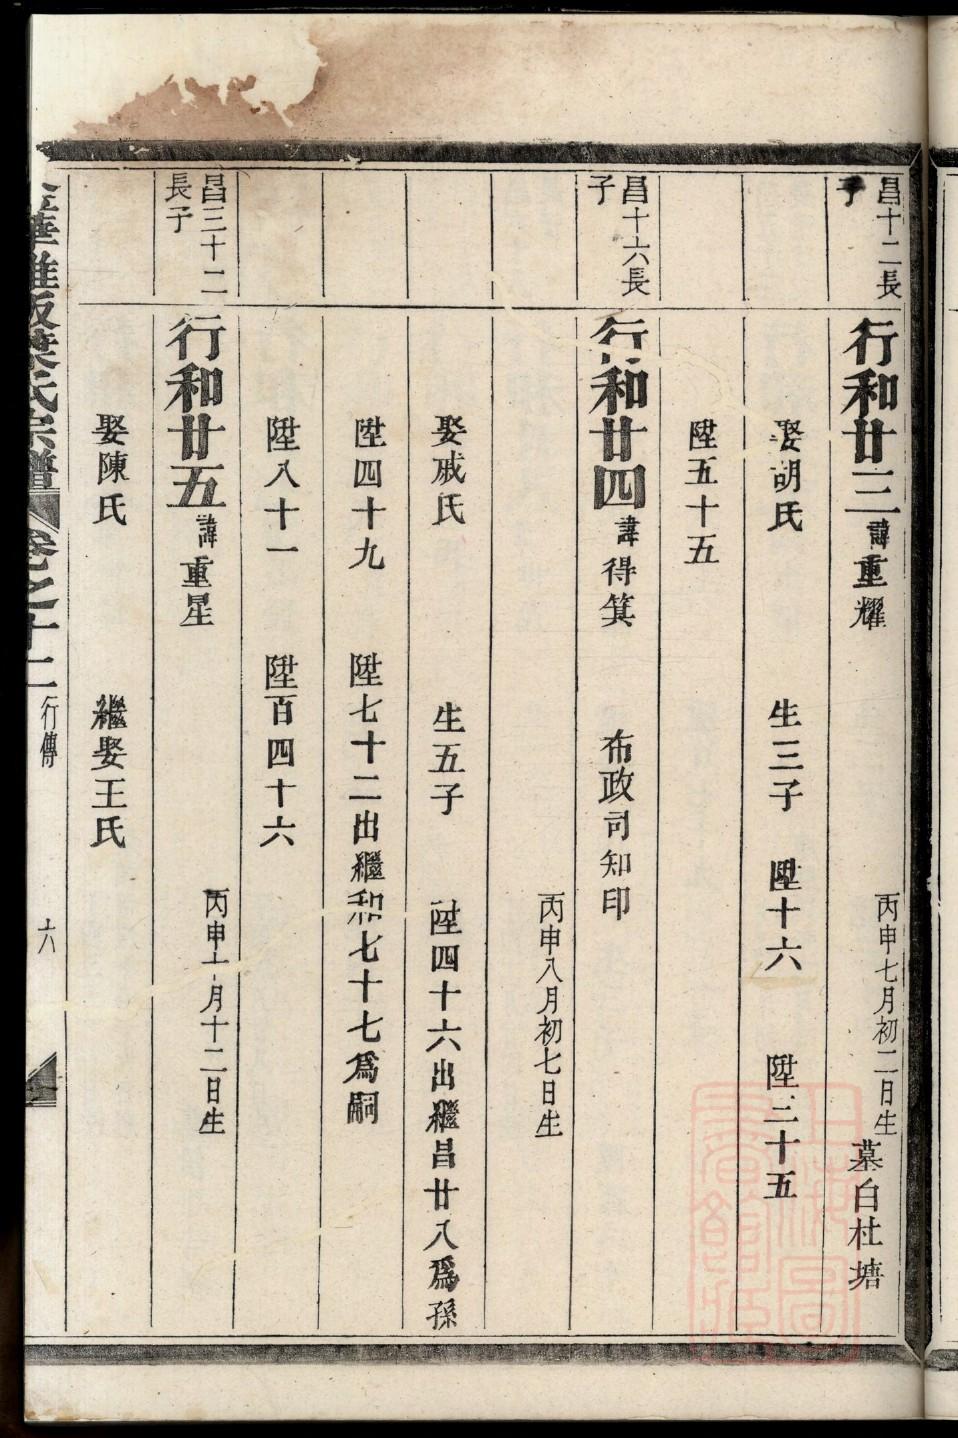 昌十二長子
行和廿三 諱重耀 丙申七月初二日生 墓白杜塘
娶胡氏 生三子 陞十六 陞三十五
陞五十五
昌十六長子
行和廿四 諱得箕 布政司知印
丙申八月初七日生
娶戚氏 生五子 陞四十六出繼昌廿八爲孫
陞四十九 陞七十二出繼和七十七爲嗣
陞八十一 陞百四十六
昌三十二長子
行和廿五 諱重星 丙申十月十二日生
娶陳氏 繼娶王氏
華 葉氏宗譜 卷之十二 行傳 六